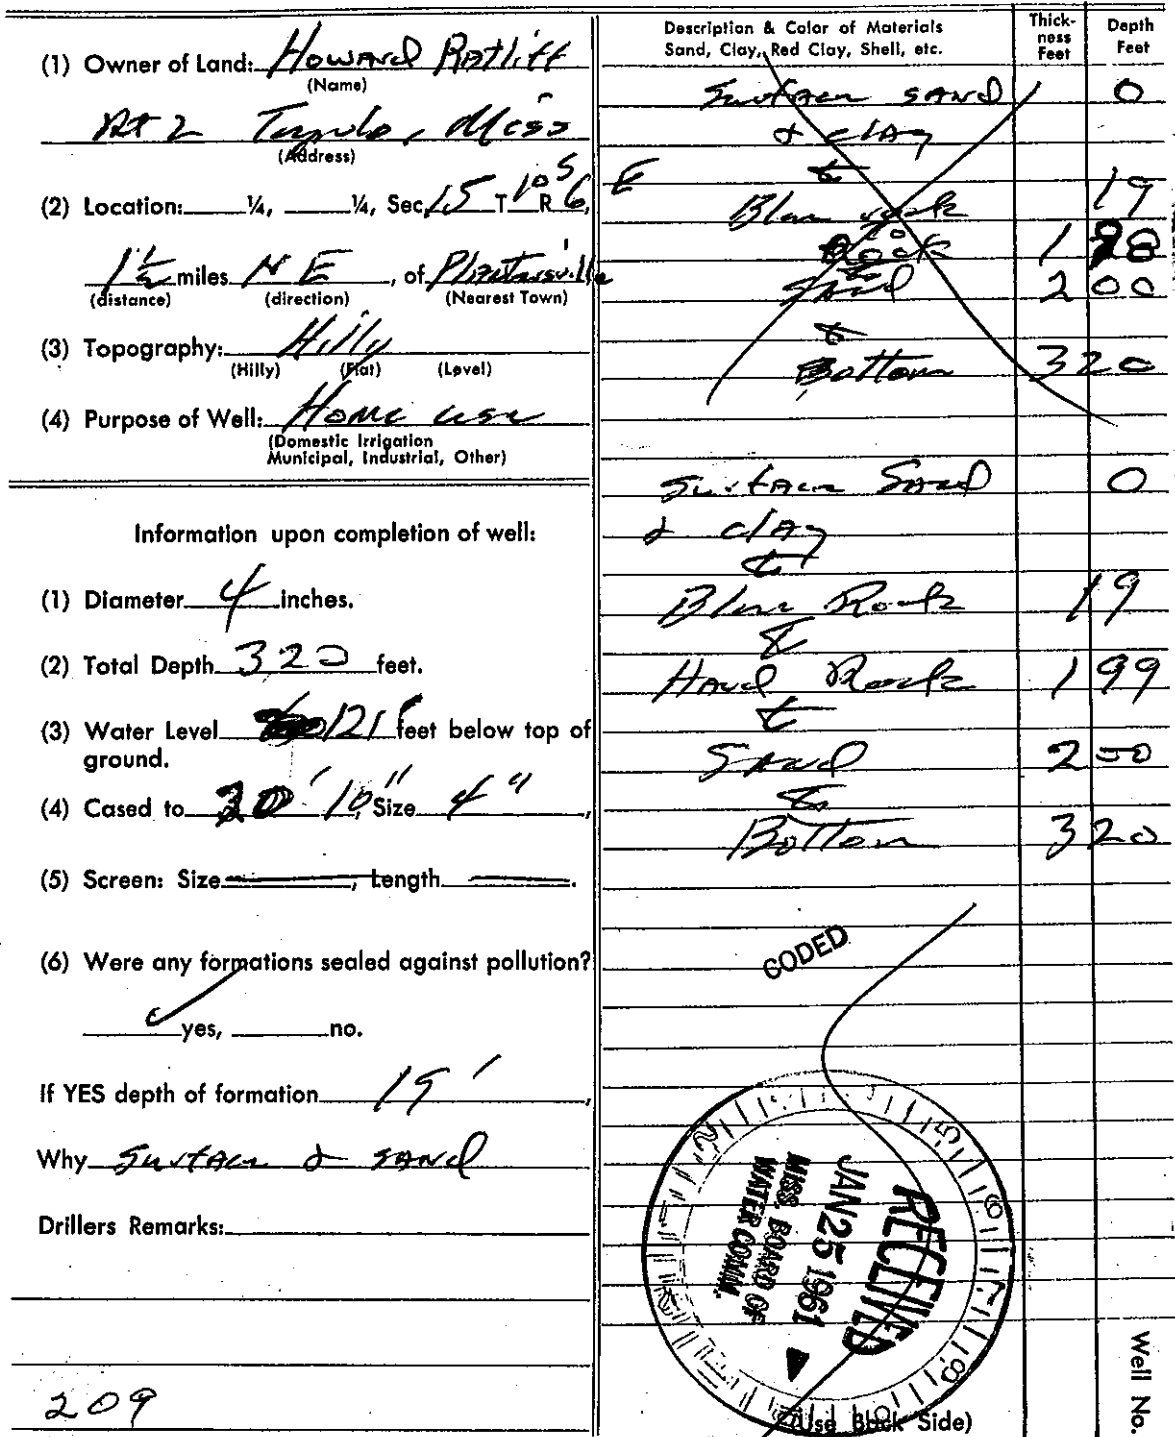 (1) Owner of Land: Howard Ratliff
(Name)
Rt 2 Tupelo, Miss
(Address)
(2) Location: ____ ¼, ____ ¼, Sec, 15 T 10 S R 6, E
1½ miles N E, of Plantersville
(distance) (direction) (Nearest Town)
(3) Topography: Hilly
(Hilly) (Flat) (Level)
(4) Purpose of Well: Home use
(Domestic Irrigation
Municipal, Industrial, Other)
Information upon completion of well:
(1) Diameter 4 inches.
(2) Total Depth 320 feet.
(3) Water Level 121' feet below top of
ground.
(4) Cased to 20' 10", Size 4",
(5) Screen: Size ____, Length ____.
(6) Were any formations sealed against pollution?
✓ yes, ____ no.
If YES depth of formation 19',
Why Surface & sand
Drillers Remarks:
209
Description & Color of Materials
Sand, Clay, Red Clay, Shell, etc.
Thick-
ness
Feet
Depth
Feet
Surface sand 0
& clay
to
Blue rock 19
to
Rock 1 98
Sand 200
to
Bottom 320
Surface Sand 0
& clay
to
Blue Rock 19
to
Hard Rock 199
to
Sand 200
to
Bottom 320
CODED
RECEIVED
JAN 25 1961
MISS. BOARD OF
WATER COMM.
(Use Back Side)
Well No.